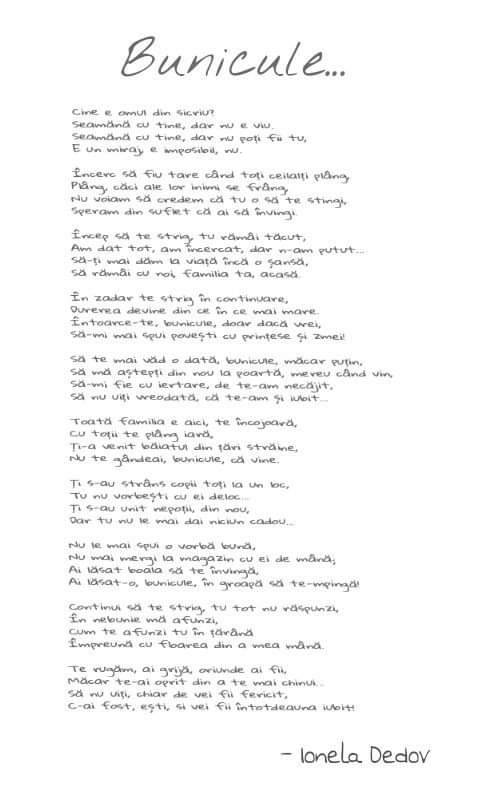 Bunicule...
Cine e omul din sicriu?
Seamănă cu tine, dar nu e viu.
Seamănă cu tine, dar nu poți fii tu,
E un miraj, e imposibil, nu.
Încerc să fiu tare când toți ceilalți plâng,
Plâng, căci ale lor inimi se frâng,
Nu voiam să credem că tu o să te stingi,
Speram din suflet că ai să învingi.
Încep să te strig, tu rămâi tăcut,
Am dat tot, am încercat, dar n-am putut...
Să-ți mai dăm la viață încă o șansă,
Să rămâi cu noi, familia ta, acasă.
În zadar te strig în continuare,
Durerea devine din ce în ce mai mare.
Întoarce-te, bunicule, doar dacă vrei,
Să-mi mai spui povești cu prințese și zmei!
Să te mai văd o dată, bunicule, măcar puțin,
Să mă aștepți din nou la poartă, mereu când vin,
Să-mi fie cu iertare, de te-am necăjit,
Să nu uiți vreodată, că te-am și iubit...
Toată familia e aici, te încojoară,
Cu toții te plâng iară,
Ți-a venit băiatul din țări străine,
Nu te gândeai, bunicule, că vine.
Ți s-au strâns copii toți la un loc,
Tu nu vorbești cu ei deloc...
Ți s-au unit nepoții, din nou,
Dar tu nu le mai dai niciun cadou...
Nu le mai spui o vorbă bună,
Nu mai mergi la magazin cu ei de mână;
Ai lăsat boala să te învingă,
Ai lăsat-o, bunicule, în groapă să te-mpingă!
Continui să te strig, tu tot nu răspunzi,
În nebunie mă afunzi,
Cum te afunzi tu în țărână
Împreună cu floarea din a mea mână.
Te rugăm, ai grijă, oriunde ai fii,
Măcar te-ai oprit din a te mai chinui...
Să nu uiți, chiar de vei fii fericit,
C-ai fost, ești, si vei fii întotdeauna iubit!
- Ionela Dedov